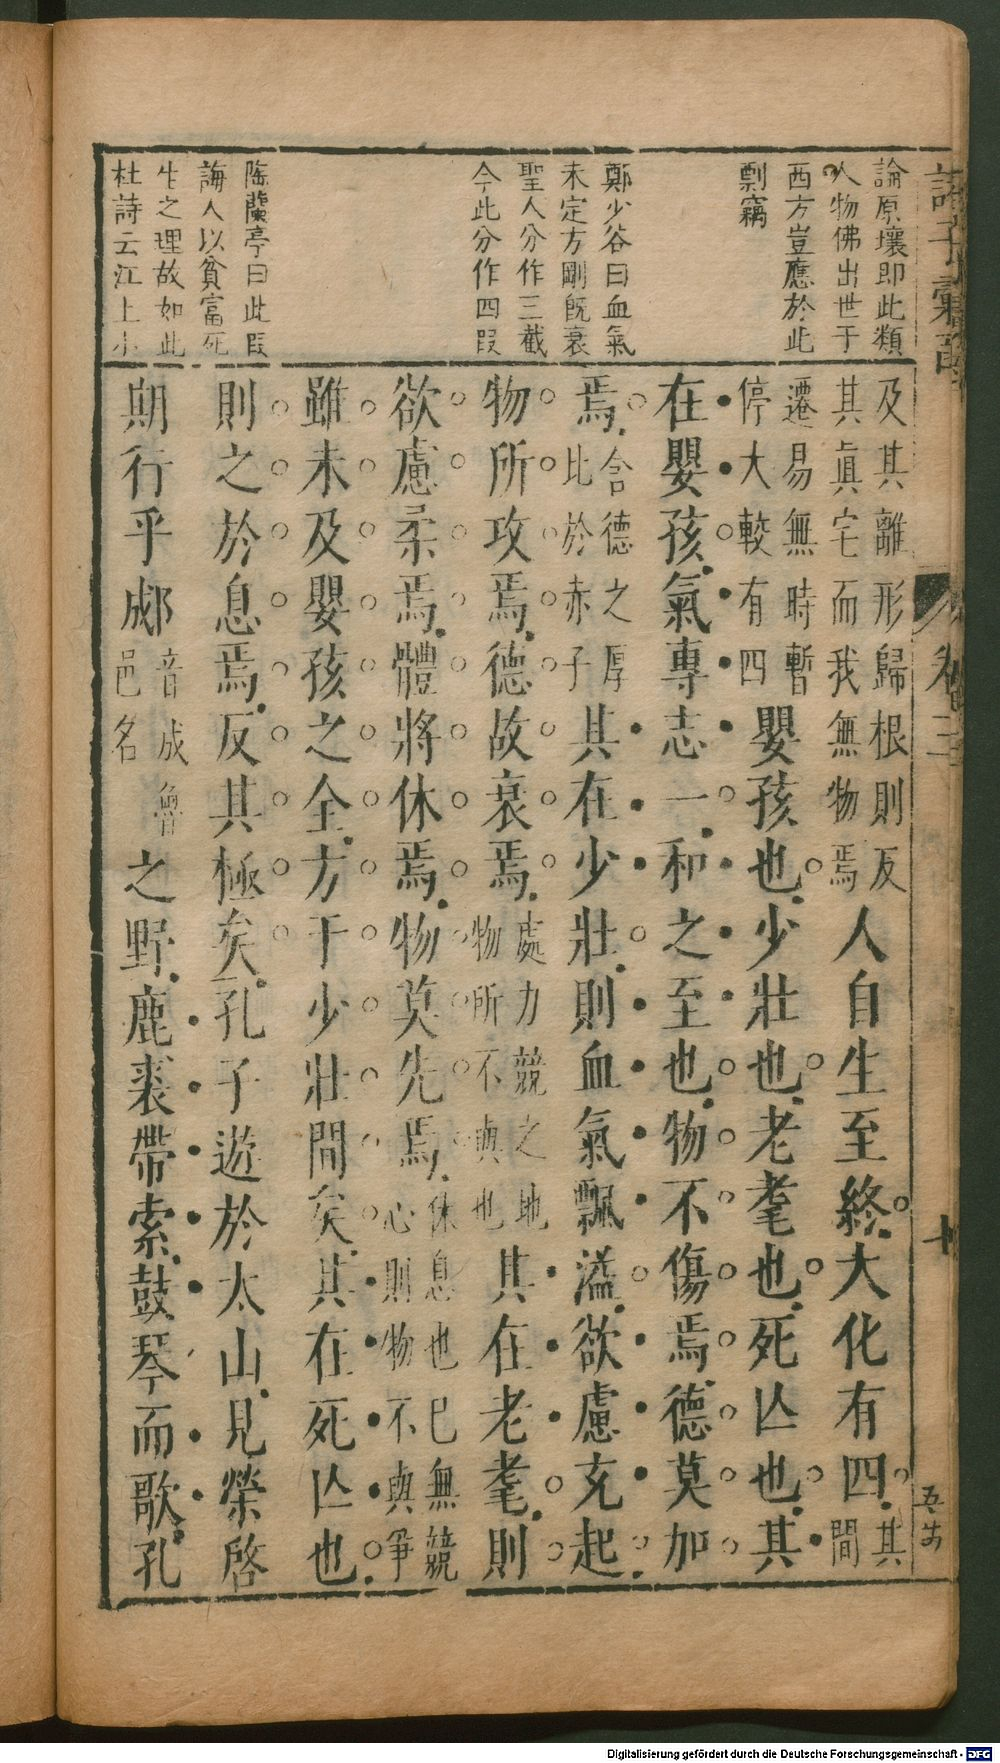 諸子彙函
卷三
十
論原壤即此類
人物佛出世于
西方豈應於此
剽竊
鄭少谷曰血氣
未定方剛既衰
聖人分作三截
今此分作四段
陸蘭亭曰此段
誨人以貧富死
生之理故如此
杜詩云江上小
及其離形歸根則反
其真宅而我無物焉人自生至終大化有四其
間
遷易無時暫
停大較有四嬰孩也少壯也老耄也死亾也其
在嬰孩氣專志一和之至也物不傷焉德莫加
焉含德之厚
比於赤子其在少壯則血氣飄溢欲慮充起
物所攻焉德故衰焉處力競之地
物所不與也其在老耄則
欲慮柔焉體將休焉物莫先焉休息也已無競
心則物不與爭
雖未及嬰孩之全方于少壯間矣其在死亾也
則之於息焉反其極矣孔子遊於太山見榮啓
期行乎郕音成魯
邑名之野鹿裘帶索鼓琴而歌孔
Digitalisierung gefördert durch die Deutsche Forschungsgemeinschaft - DFG